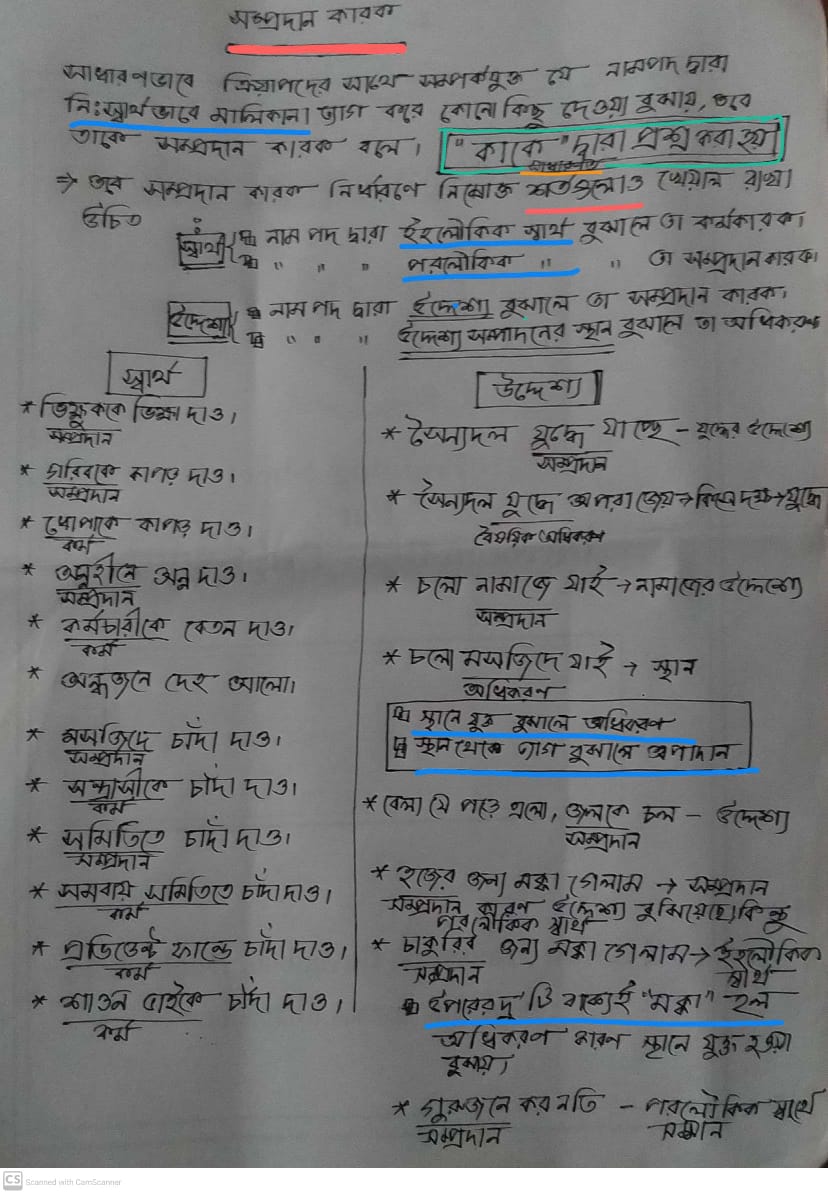 সম্প্রদান কারক
সাধারণভাবে ক্রিয়াপদের সাথে সম্পর্কযুক্ত যে নামপদ দ্বারা
নিঃস্বার্থভাবে মালিকানা ত্যাগ করে কোনো কিছু দেওয়া বুঝায়, তবে
তাকে সম্প্রদান কারক বলে। "কাকে" দ্বারা প্রশ্ন করা হয়
→ তবে সম্প্রদান কারক নির্ধারণে নিম্নোক্ত শর্তগুলোও খেয়াল রাখা
উচিত
স্বার্থ নাম পদ দ্বারা ইহলৌকিক স্বার্থ বুঝালে তা কর্মকারক।
" " " পরলৌকিক " " তা সম্প্রদান কারক।
উদ্দেশ্য নাম পদ দ্বারা উদ্দেশ্য বুঝালে তা সম্প্রদান কারক।
" " " উদ্দেশ্য সম্পাদনের স্থান বুঝালে তা অধিকরণ
স্বার্থ
* ভিক্ষুককে ভিক্ষা দাও।
সম্প্রদান
* গরিবকে কাপড় দাও।
সম্প্রদান
* ধোপাকে কাপড় দাও।
কর্ম
* অন্নহীনে অন্ন দাও।
সম্প্রদান
* কর্মচারীকে বেতন দাও।
কর্ম
* অন্ধজনে দেহ আলো।
* মসজিদে চাঁদা দাও।
সম্প্রদান
* সন্ত্রাসীকে চাঁদা দাও।
কর্ম
* সমিতিতে চাঁদা দাও।
সম্প্রদান
* সমবায় সমিতিতে চাঁদা দাও।
কর্ম
* প্রভিডেন্ট ফান্ডে চাঁদা দাও।
কর্ম
* শাওন ভাইকে চাঁদা দাও।
কর্ম
উদ্দেশ্য
* সৈন্যদল যুদ্ধে যাচ্ছে - যুদ্ধের উদ্দেশ্যে
সম্প্রদান
* সৈন্যদল যুদ্ধে অপরাজেয় → → যুদ্ধে
বৈষয়িক অধিকরণ
* চলো নামাজে যাই → নামাজের উদ্দেশ্যে
সম্প্রদান
* চলো মসজিদে যাই → স্থান
অধিকরণ
স্থানে যুক্ত বুঝালে অধিকরণ
স্থান থেকে ত্যাগ বুঝালে অপাদান
* বেলা যে পড়ে এলো, জলকে চল - উদ্দেশ্য
সম্প্রদান
* হজের জন্য মক্কা গেলাম → সম্প্রদান
সম্প্রদান কারণ উদ্দেশ্য বুঝিয়েছে। কিন্তু
পরলৌকিক স্বার্থ
* চাকুরির জন্য মক্কা গেলাম → ইহলৌকিক
সম্প্রদান স্বার্থ
উপরের দুটি বাক্যেই "মক্কা" হল
অধিকরণ কারণ স্থানে যুক্ত হওয়া
বুঝায়।
* গুরুজনে কর নতি - পরলৌকিক স্বার্থে
সম্প্রদান সম্মান
CS Scanned with CamScanner